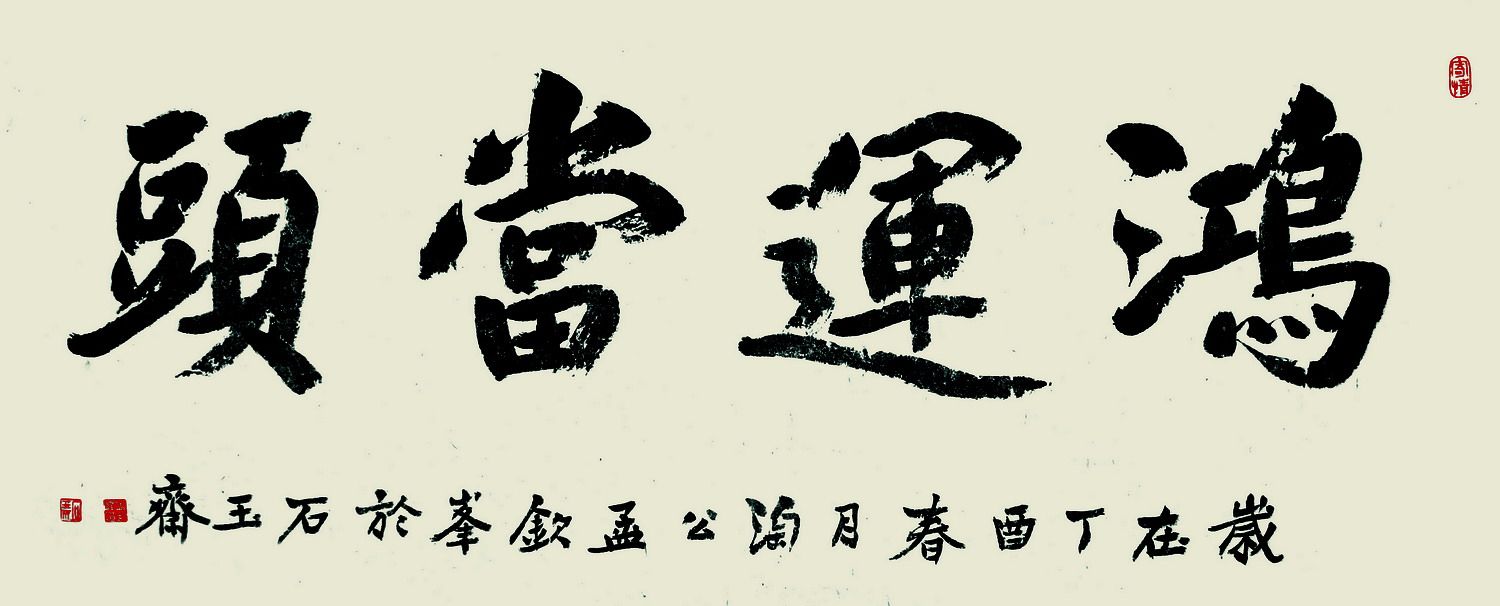 鴻運當頭
歲在丁酉春月淘公孟欽峯於石玉齋
寄情